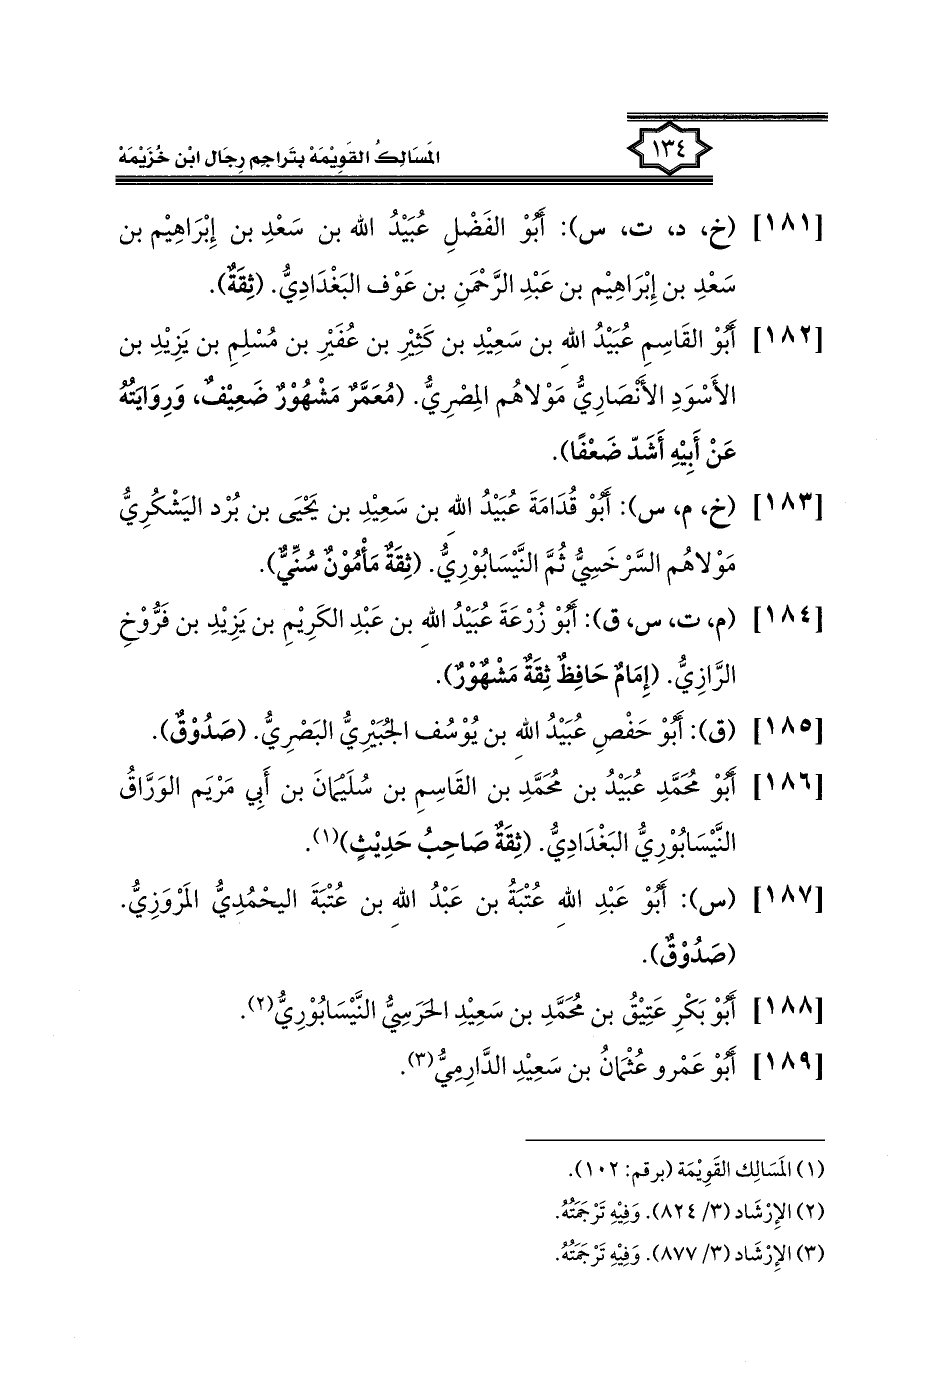 ١٣٤
المَسَالِكُ القَوِيْمَة بِتَراجِم رِجَال ابْن خُزَيْمَة
[١٨١] (خ، د، ت، س): أَبُوْ الفَضْلِ عُبَيْدُ اللهِ بن سَعْدِ بن إِبْرَاهِيْم بن
سَعْدِ بن إِبْرَاهِيْم بن عَبْدِ الرَّحْمَنِ بن عَوْف البَغْدَادِيُّ. (ثِقَةٌ).
[١٨٢] أَبُوْ القَاسِمِ عُبَيْدُ اللهِ بن سَعِيْدِ بن كَثِيْرِ بن عُفَيْرِ بن مُسْلِمِ بن يَزِيْدِ بن
الأَسْوَدِ الأَنْصَارِيُّ مَوْلاهُم المِصْرِيُّ. (مُعَمَّرٌ مَشْهُوْرٌ ضَعِيْفٌ، وَرِوَايَتُهُ
عَنْ أَبِيْهِ أَشَدّ ضَعْفًا).
[١٨٣] (خ، م، س): أَبُوْ قُدَامَةَ عُبَيْدُ اللهِ بن سَعِيْدِ بن يَحْيَى بن بُرْد اليَشْكُرِيُّ
مَوْلاهُم السَّرْخَسِيُّ ثُمَّ النَّيْسَابُوْرِيُّ. (ثِقَةٌ مَأْمُوْنٌ سُنِّيٌّ).
[١٨٤] (م، ت، س، ق): أَبُوْ زُرْعَةَ عُبَيْدُ اللهِ بن عَبْدِ الكَرِيْمِ بن يَزِيْدِ بن فَرُّوْخِ
الرَّازِيُّ. (إِمَامٌ حَافِظٌ ثِقَةٌ مَشْهُوْرٌ).
[١٨٥] (ق): أَبُوْ حَفْصِ عُبَيْدُ اللهِ بن يُوْسُف الجُبَيْرِيُّ البَصْرِيُّ. (صَدُوْقٌ).
[١٨٦] أَبُوْ مُحَمَّدِ عُبَيْدُ بن مُحَمَّدِ بن القَاسِمِ بن سُلَيْمَانَ بن أَبِي مَرْيَم الوَرَّاقُ
النَّيْسَابُوْرِيُّ البَغْدَادِيُّ. (ثِقَةٌ صَاحِبُ حَدِيْثٍ)(١).
[١٨٧] (س): أَبُوْ عَبْدِ اللهِ عُتْبَةُ بن عَبْدُ اللهِ بن عُتْبَةَ اليحْمُدِيُّ المَرْوَزِيُّ.
(صَدُوْقٌ).
[١٨٨] أَبُوْ بَكْرِ عَتِيْقُ بن مُحَمَّدِ بن سَعِيْدِ الحَرَسِيُّ النَّيْسَابُوْرِيُّ(٢).
[١٨٩] أَبُوْ عَمْرو عُثْمَانُ بن سَعِيْدِ الدَّارِمِيُّ(٣).
(١) المَسَالِك القَوِيْمَة (برقم: ١٠٢).
(٢) الإِرْشَاد (٣/ ٨٢٤). وَفِيْهِ تَرْجَمَتُهُ.
(٣) الإِرْشَاد (٣/ ٨٧٧). وَفِيْهِ تَرْجَمَتُهُ.